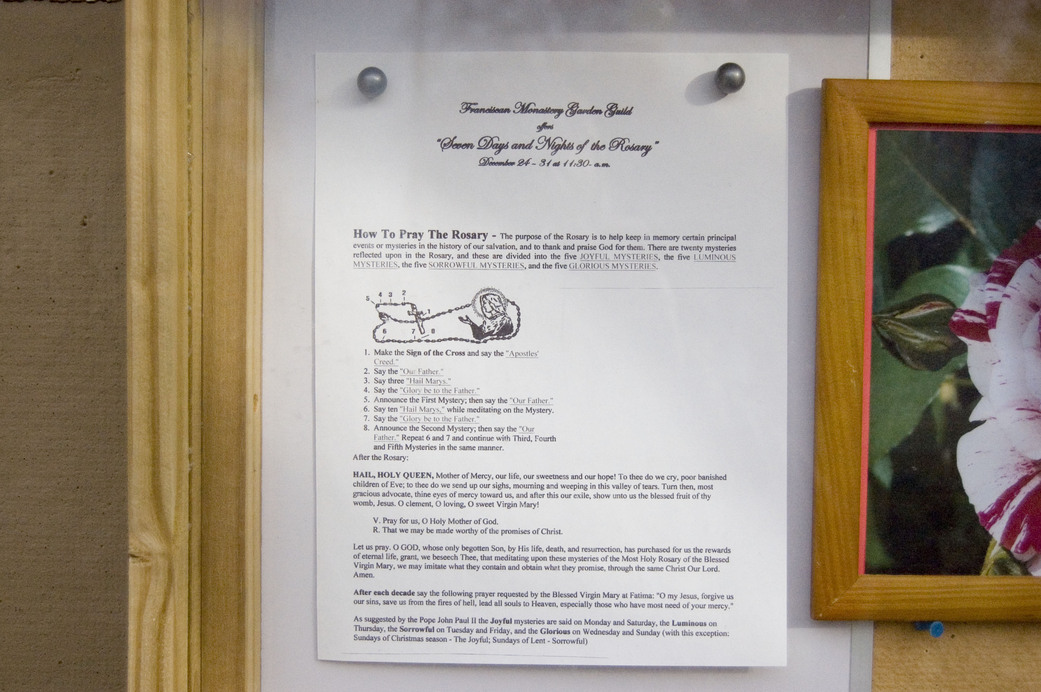 Franciscan Monastery Garden Guild
offers
"Seven Days and Nights of the Rosary"
December 24 - 31 at 11:30 a.m.
How To Pray The Rosary - The purpose of the Rosary is to help keep in memory certain principal
events or mysteries in the history of our salvation, and to thank and praise God for them. There are twenty mysteries
reflected upon in the Rosary, and these are divided into the five JOYFUL MYSTERIES, the five LUMINOUS
MYSTERIES, the five SORROWFUL MYSTERIES, and the five GLORIOUS MYSTERIES.
4 3 2
5
1
6 7 8
1. Make the Sign of the Cross and say the "Apostles'
Creed."
2. Say the "Our Father."
3. Say three "Hail Marys."
4. Say the "Glory be to the Father."
5. Announce the First Mystery; then say the "Our Father."
6. Say ten "Hail Marys," while meditating on the Mystery.
7. Say the "Glory be to the Father."
8. Announce the Second Mystery; then say the "Our
Father." Repeat 6 and 7 and continue with Third, Fourth
and Fifth Mysteries in the same manner.
After the Rosary:
HAIL, HOLY QUEEN, Mother of Mercy, our life, our sweetness and our hope! To thee do we cry, poor banished
children of Eve; to thee do we send up our sighs, mourning and weeping in this valley of tears. Turn then, most
gracious advocate, thine eyes of mercy toward us, and after this our exile, show unto us the blessed fruit of thy
womb, Jesus. O clement, O loving, O sweet Virgin Mary!
V. Pray for us, O Holy Mother of God.
R. That we may be made worthy of the promises of Christ.
Let us pray. O GOD, whose only begotten Son, by His life, death, and resurrection, has purchased for us the rewards
of eternal life, grant, we beseech Thee, that meditating upon these mysteries of the Most Holy Rosary of the Blessed
Virgin Mary, we may imitate what they contain and obtain what they promise, through the same Christ Our Lord.
Amen.
After each decade say the following prayer requested by the Blessed Virgin Mary at Fatima: "O my Jesus, forgive us
our sins, save us from the fires of hell, lead all souls to Heaven, especially those who have most need of your mercy."
As suggested by the Pope John Paul II the Joyful mysteries are said on Monday and Saturday, the Luminous on
Thursday, the Sorrowful on Tuesday and Friday, and the Glorious on Wednesday and Sunday (with this exception:
Sundays of Christmas season - The Joyful; Sundays of Lent - Sorrowful)